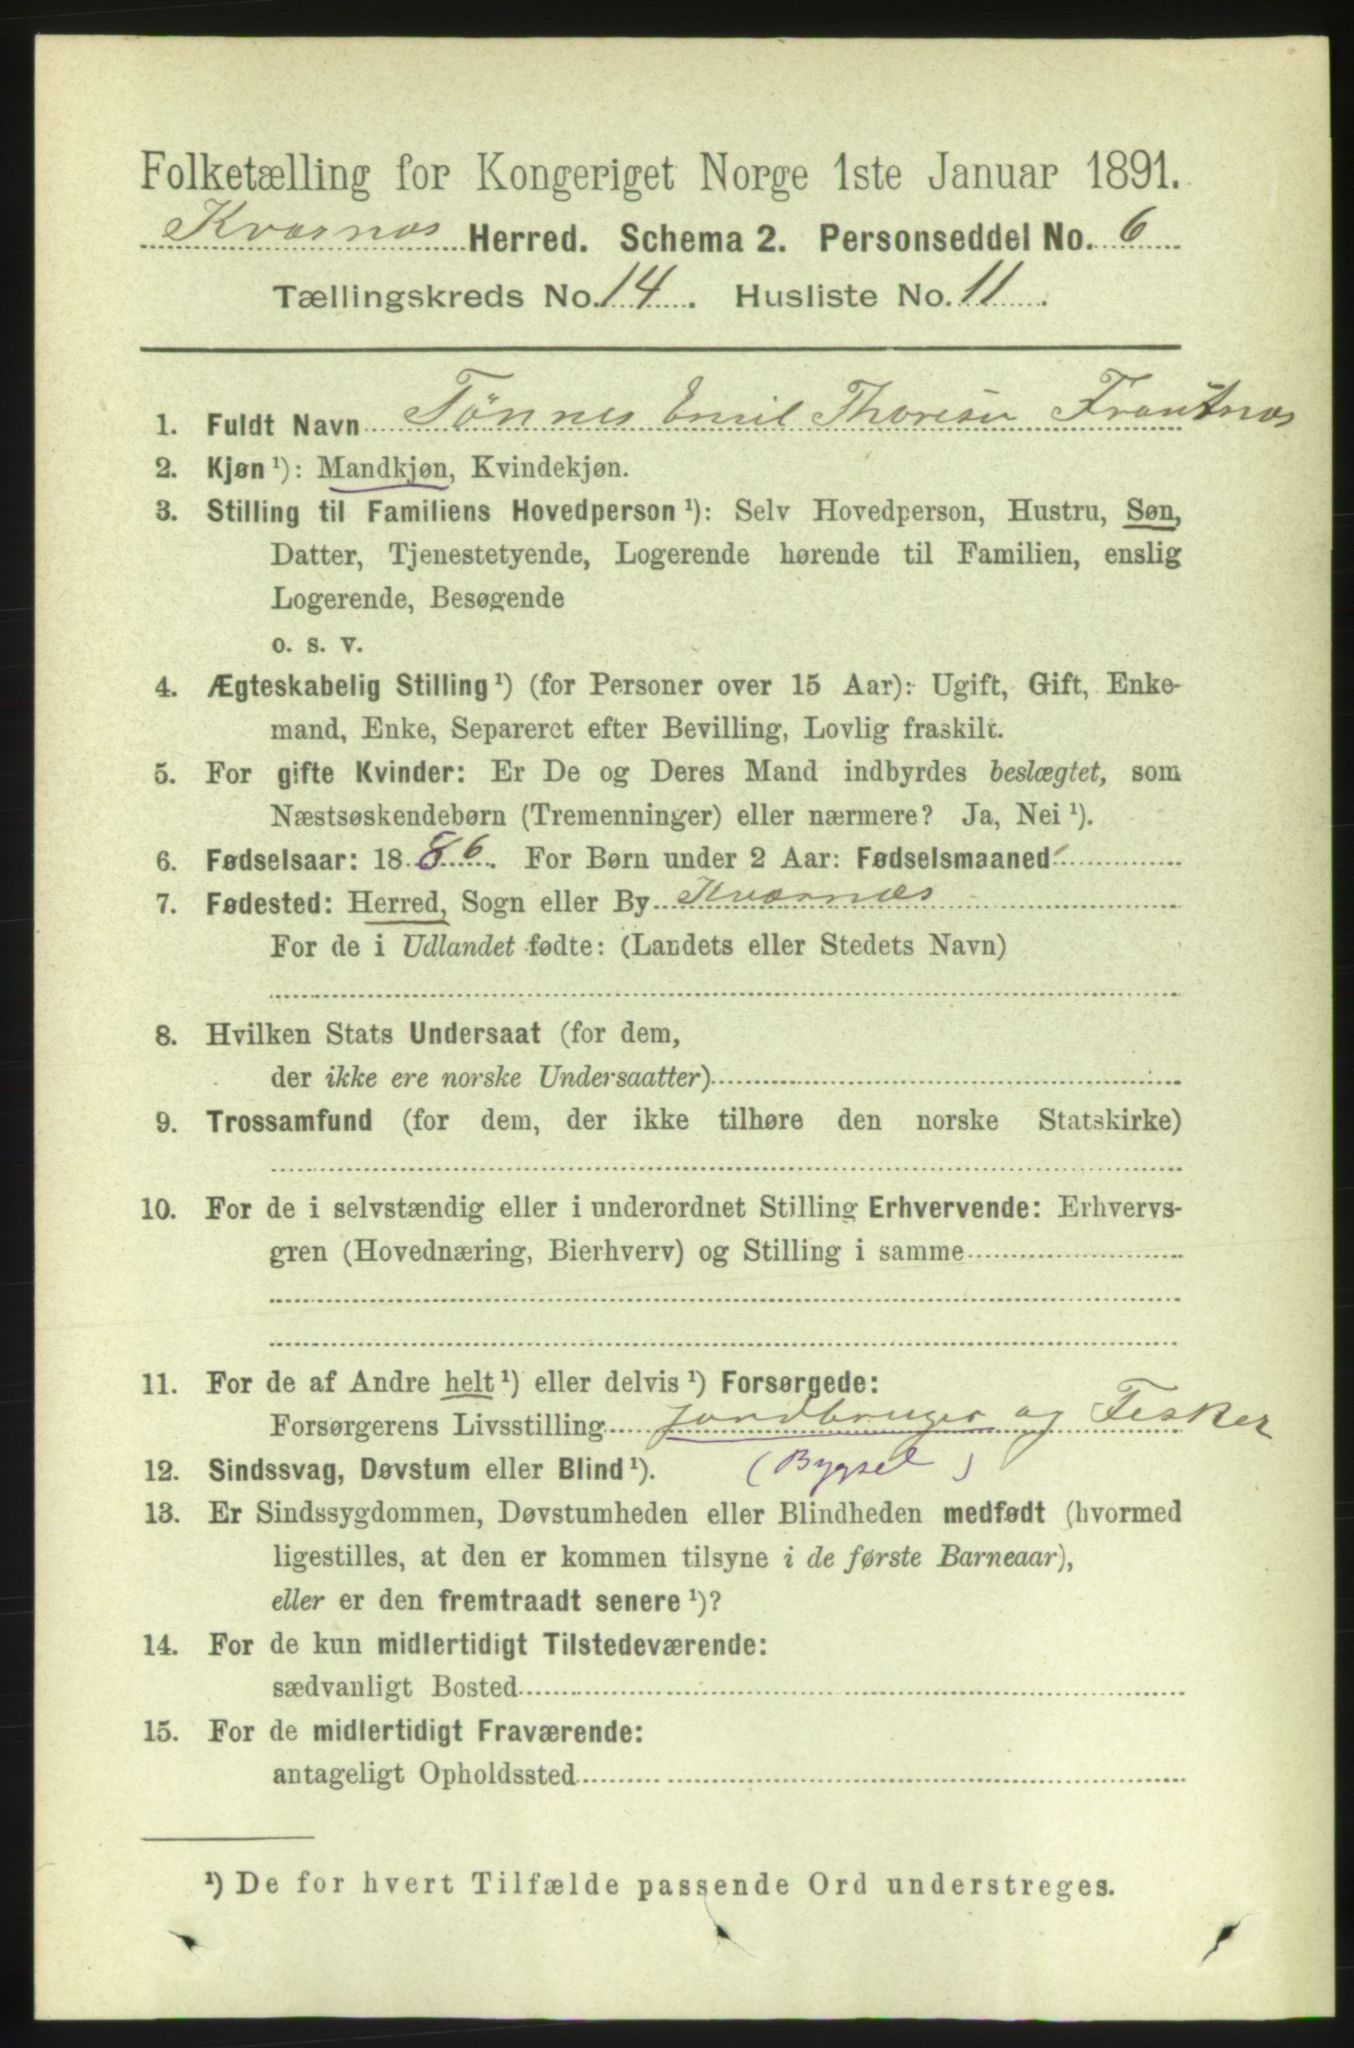 Folketælling for Kongeriget Norge 1ste Januar 1891.
Kværnæs Herred. Schema 2. Personseddel No. 6
Tællingskreds No. 14. Husliste No. 11.
1. Fuldt Navn Tønnes Emil Thoresen
2. Kjøn ¹): Mandkjøn, Kvindekjøn.
3. Stilling til Familiens Hovedperson ¹): Selv Hovedperson, Hustru, Søn,
Datter, Tjenestetyende, Logerende hørende til Familien, enslig
Logerende, Besøgende
o. s. v.
4. Ægteskabelig Stilling ¹) (for Personer over 15 Aar): Ugift, Gift, Enke-
mand, Enke, Separeret efter Bevilling, Lovlig fraskilt.
5. For gifte Kvinder: Er De og Deres Mand indbyrdes beslægtet, som
Næstsøskendebørn (Tremenninger) eller nærmere? Ja, Nei ¹).
6. Fødselsaar: 1886. For Børn under 2 Aar: Fødselsmaaned
7. Fødested: Herred, Sogn eller By Kværnæs
For de i Udlandet fødte: (Landets eller Stedets Navn)
8. Hvilken Stats Undersaat (for dem,
der ikke ere norske Undersaatter)
9. Trossamfund (for dem, der ikke tilhøre den norske Statskirke)
10. For de i selvstændig eller i underordnet Stilling Erhvervende: Erhvervs-
gren (Hovednæring, Bierhverv) og Stilling i samme
11. For de af Andre helt ¹) eller delvis ¹) Forsørgede:
Forsørgerens Livsstilling Jordbruger og Fisker
(Bygsel)
12. Sindssvag, Døvstum eller Blind ¹).
13. Er Sindssygdommen, Døvstumheden eller Blindheden medfødt (hvormed
ligestilles, at den er kommen tilsyne i de første Barneaar),
eller er den fremtraadt senere ¹)?
14. For de kun midlertidigt Tilstedeværende:
sædvanligt Bosted
15. For de midlertidigt Fraværende:
antageligt Opholdssted
¹) De for hvert Tilfælde passende Ord understreges.